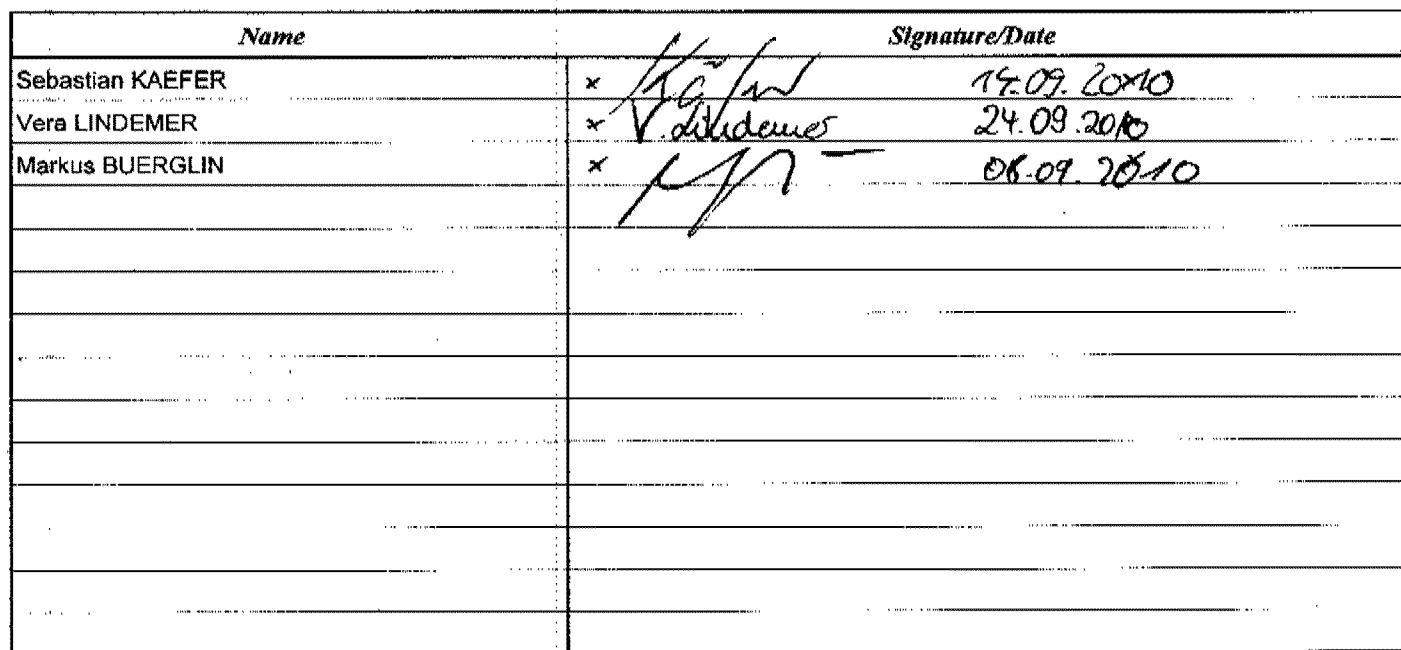 Name Signature/Date
Sebastian KAEFER × 14.09.2010
Vera LINDEMER × V. Lindemer 24.09.2010
Markus BUERGLIN × 08.09.2010